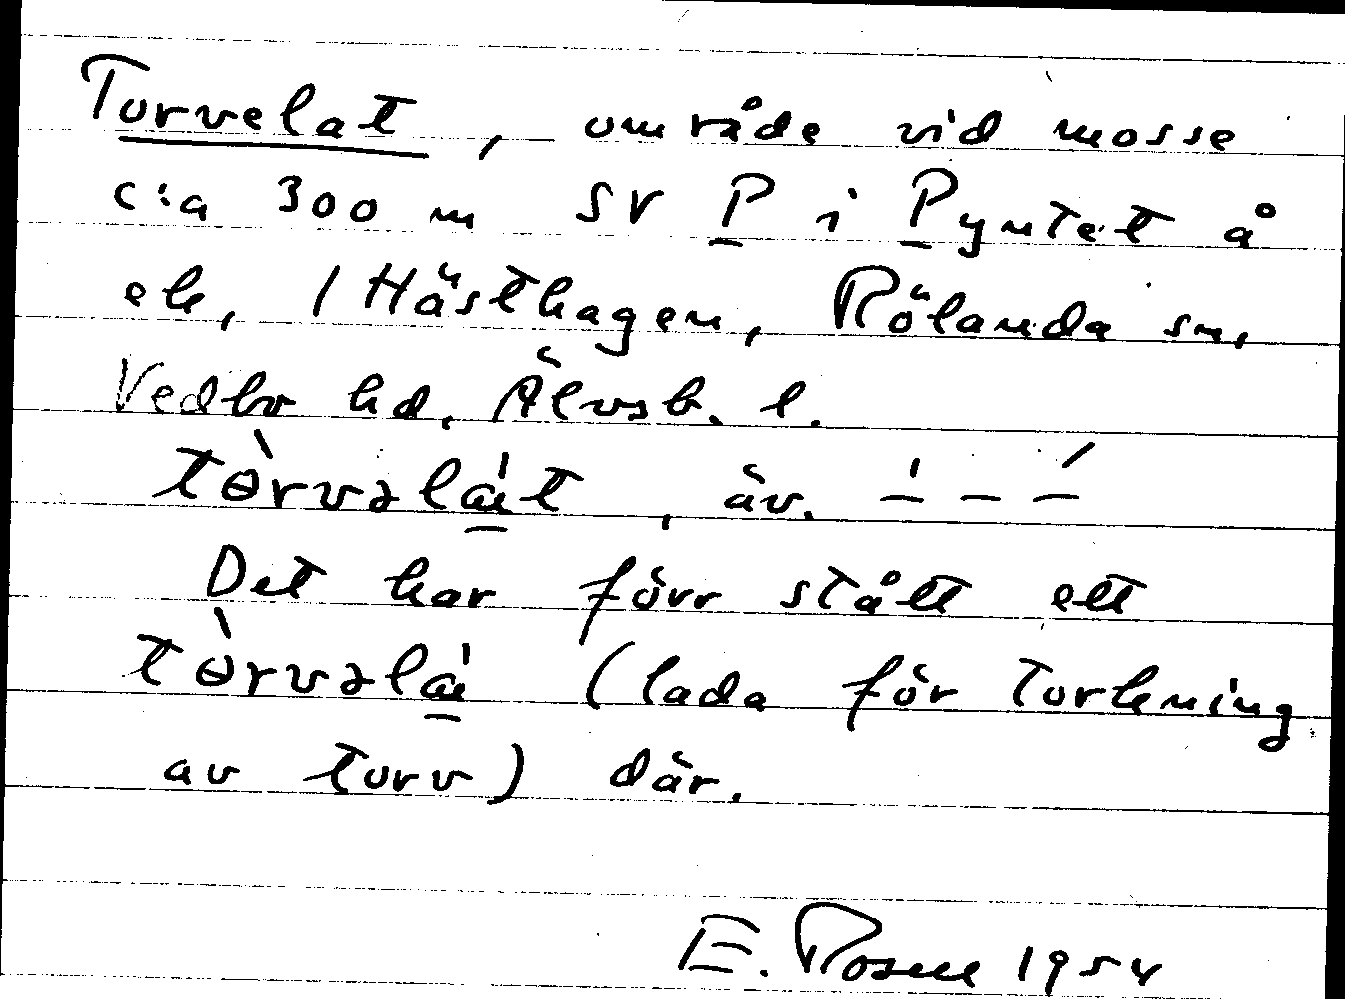 Torvelat, område vid mosse
c:a 300 m SV P i Pyntet å
ek, i Hästhagen, Rölanda sn,
Vedbo hd, Älvsb. l.
tòrvəlát, äv. –́ – –́
Det har förr stått ett
tòrvəlá (lada för torkning
av torv) där.
E. Rosell 1954